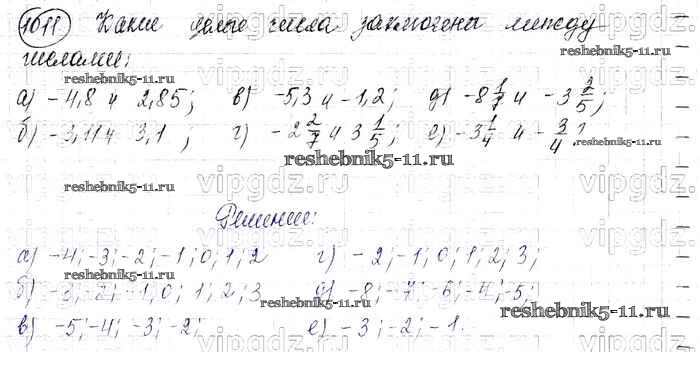 1011 Какие целые числа заключены между
числами:
а) -4,8 и 2,85; в) -5,3 и -1,2; д) -8 1/7 и -3 2/5;
б) -3,11 и 3,1; г) -2 2/7 и 3 1/5; е) -3 1/4 и -3/4?
Решение:
а) -4; -3; -2; -1; 0; 1; 2 г) -2; -1; 0; 1; 2; 3;
б) -3; -2; -1, 0; 1; 2; 3 д) -8; -7; -6; -4; -5;
в) -5; -4; -3; -2; е) -3; -2; -1.
reshebnik5-11.ru
reshebnik5-11.ru
reshebnik5-11.ru
reshebnik5-11.ru
reshebnik5-11.ru
reshebnik5-11.ru
vipgdz.ru
vipgdz.ru
vipgdz.ru